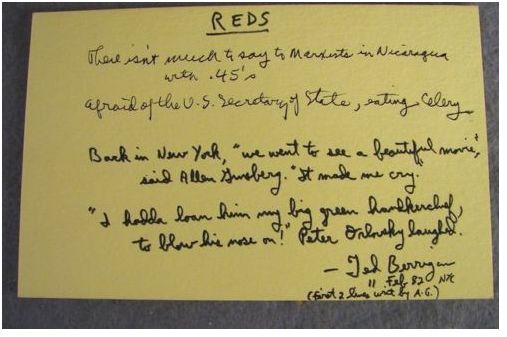 REDS
There isn't much to say to Marxists in Nicaragua
with .45's
afraid of the U.S. Secretary of State, eating Celery
Back in New York, "we went to see a beautiful movie",
said Allen Ginsberg. "It made me cry."
"I hadda loan him my big green handkerchief,
to blow his nose on!" Peter Orlovsky laughed.
— Ted Berrigan
" Feb 82 NYC
(first 2 lines writ by A.G.)